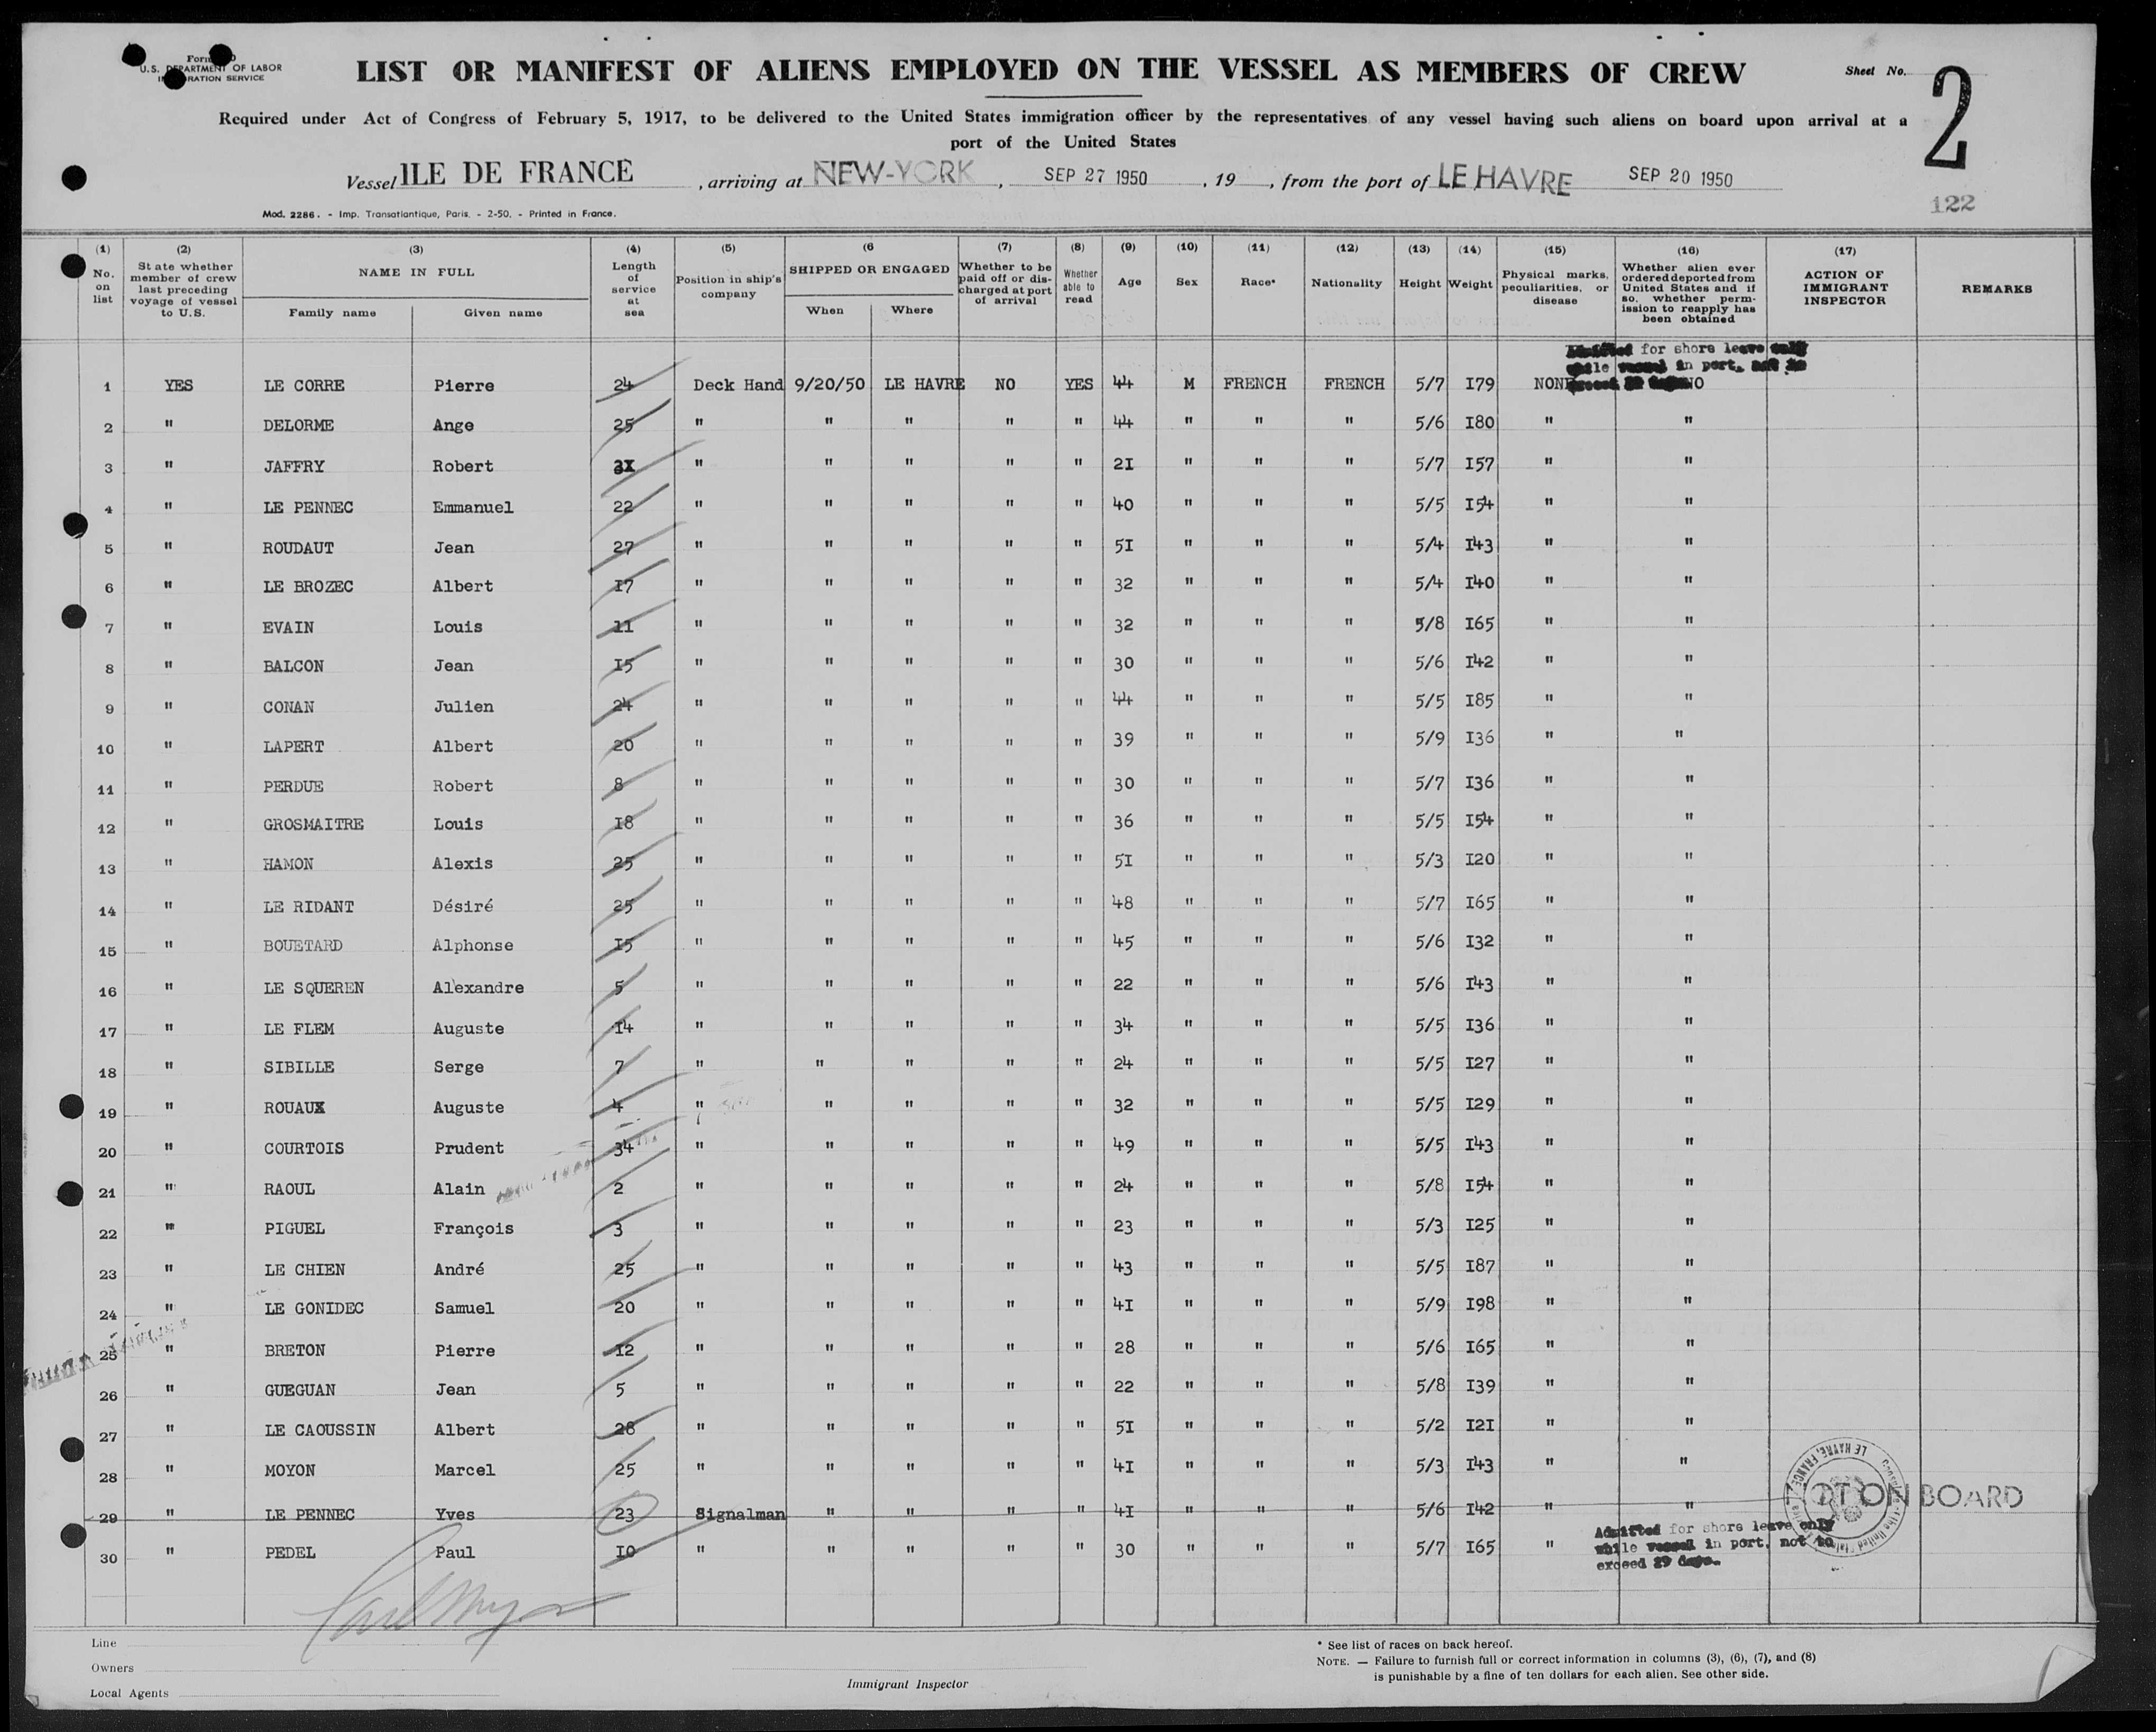 U.S. DEPARTMENT OF LABOR
IMMIGRATION SERVICE
LIST OR MANIFEST OF ALIENS EMPLOYED ON THE VESSEL AS MEMBERS OF CREW
Sheet No. 2
Required under Act of Congress of February 5, 1917, to be delivered to the United States immigration officer by the representatives of any vessel having such aliens on board upon arrival at a
port of the United States
Vessel ILE DE FRANCE, arriving at NEW-YORK, SEP 27 1950, 19, from the port of LE HAVRE SEP 20 1950
122
Mod. 2286. - Imp. Transatlantique, Paris. - 2-50. - Printed in France.
(1) (2) (3) (4) (5) (6 (7) (8) (9) (10) (11) (12) (13) (14) (15) (16) (17)
No. on list
State whether member of crew last preceding voyage of vessel to U.S.
NAME IN FULL
Family name Given name
Length of service at sea
Position in ship's company
SHIPPED OR ENGAGED
When Where
Whether to be paid off or discharged at port of arrival
Whether able to read
Age
Sex
Race*
Nationality
Height
Weight
Physical marks, peculiarities, or disease
Whether alien ever ordered deported from United States and if so, whether permission to reapply has been obtained
ACTION OF IMMIGRANT INSPECTOR
REMARKS
Admitted for shore leave only
while vessel in port, not to
exceed 29 days
1 YES LE CORRE Pierre 24 Deck Hand 9/20/50 LE HAVRE NO YES 44 M FRENCH FRENCH 5/7 I79 NONE NO
2 " DELORME Ange 25 " " " " " 44 " " " 5/6 I80 " "
3 " JAFFRY Robert " " " " " 2I " " " 5/7 I57 " "
4 " LE PENNEC Emmanuel 22 " " " " " 40 " " " 5/5 I54 " "
5 " ROUDAUT Jean 27 " " " " " 5I " " " 5/4 I43 " "
6 " LE BROZEC Albert I7 " " " " " 32 " " " 5/4 I40 " "
7 " EVAIN Louis 11 " " " " " 32 " " " 5/8 I65 " "
8 " BALCON Jean I5 " " " " " 30 " " " 5/6 I42 " "
9 " CONAN Julien 24 " " " " " 44 " " " 5/5 I85 " "
10 " LAPERT Albert 20 " " " " " 39 " " " 5/9 I36 " "
11 " PERDUE Robert 8 " " " " " 30 " " " 5/7 I36 " "
12 " GROSMAITRE Louis I8 " " " " " 36 " " " 5/5 I54 " "
13 " HAMON Alexis 25 " " " " " 5I " " " 5/3 I20 " "
14 " LE RIDANT Désiré 25 " " " " " 48 " " " 5/7 I65 " "
15 " BOUETARD Alphonse I5 " " " " " 45 " " " 5/6 I32 " "
16 " LE SQUEREN Alexandre 5 " " " " " 22 " " " 5/6 I43 " "
17 " LE FLEM Auguste I4 " " " " " 34 " " " 5/5 I36 " "
18 " SIBILLE Serge 7 " " " " " 24 " " " 5/5 I27 " "
19 " ROUAUX Auguste 4 " " " " " 32 " " " 5/5 I29 " "
20 " COURTOIS Prudent 34 " " " " " 49 " " " 5/5 I43 " "
21 " RAOUL Alain 2 " " " " " 24 " " " 5/8 I54 " "
22 " PIGUEL François 3 " " " " " 23 " " " 5/3 I25 " "
23 " LE CHIEN André 25 " " " " " 43 " " " 5/5 I87 " "
24 " LE GONIDEC Samuel 20 " " " " " 4I " " " 5/9 I98 " "
25 " BRETON Pierre I2 " " " " " 28 " " " 5/6 I65 " "
26 " GUEGUAN Jean 5 " " " " " 22 " " " 5/8 I39 " "
27 " LE CAOUSSIN Albert 28 " " " " " 5I " " " 5/2 I2I " "
28 " MOYON Marcel 25 " " " " " 4I " " " 5/3 I43 " "
29 " LE PENNEC Yves 23 Signalman " " " " 4I " " " 5/6 I42 " " NOT ON BOARD
30 " PEDEL Paul I0 " " " " " 30 " " " 5/7 I65 "
Admitted for shore leave only
while vessel in port, not to
exceed 29 days.
LE HAVRE, FRANCE
Line
Owners
Local Agents
Immigrant Inspector
* See list of races on back hereof.
NOTE. — Failure to furnish full or correct information in columns (3), (6), (7), and (8)
is punishable by a fine of ten dollars for each alien. See other side.